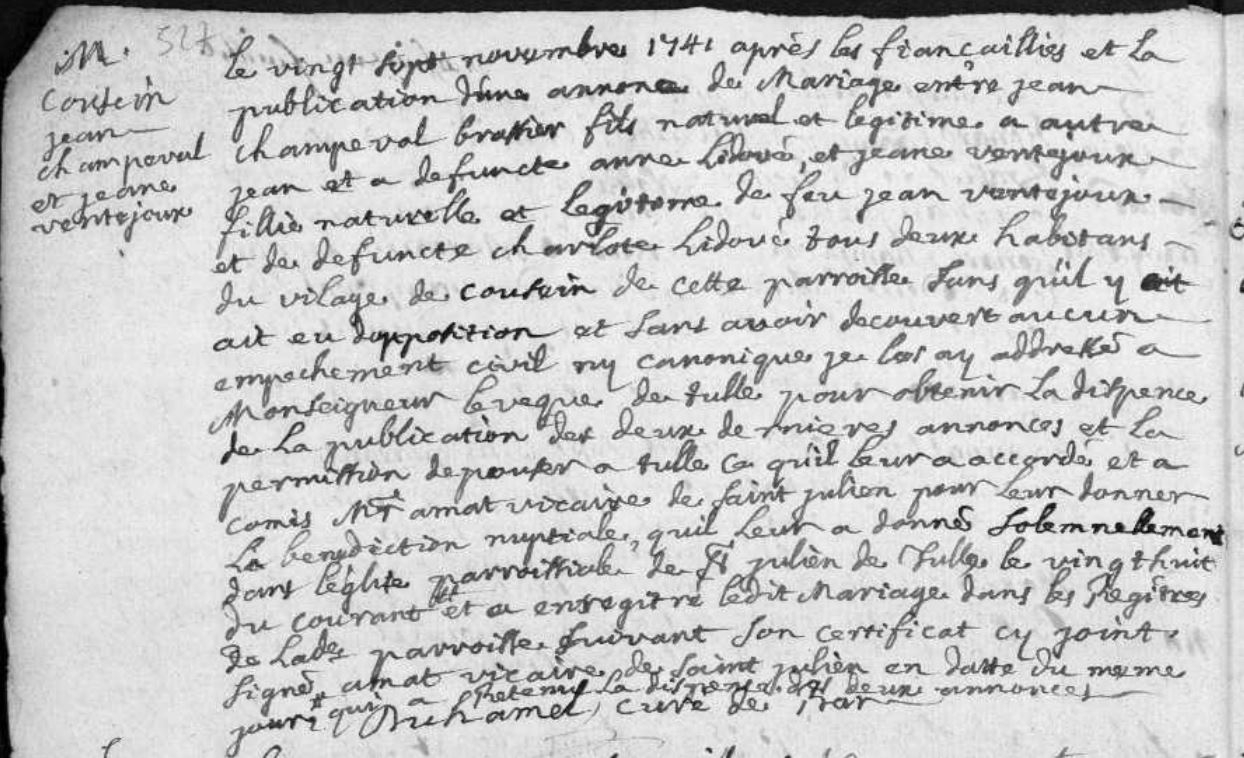 M. 527
Cousein
jean
champeval
et jeane
ventejoux
le vingt sept novembre 1741 après les fiançaillies et la
publication d'une annonce de Mariage entre jean
champeval brassier fils naturel et legitime a autre
jean et a defuncte anne Lidové, et jeane ventejoux
fillie naturelle et legitime de feu jean ventejoux
et de defuncte charlote Lidové tous deux habitans
du vilage de cousein de cette parroisse sans qu'il y ait
ait eu d'opposition et sans avoir decouvert aucun
empechement civil ny canonique je les ay addressé a
Monseigneur leveque de tulle pour obtenir la dispence
de La publication des deux dernieres annonces et La
permission depouser a tulle ce qu'il leur a accordé et a
comis Mr amat vicaire de saint julien pour leur donner
La benediction nuptiale, qu'il leur a donnée solemnellement
dans l'église parroissiale de St julien de Tulle le vingthuit
du courant et a enregitré ledit Mariage dans les Regitres
de Lade parroisse suivant son certificat cy joint
signé amat vicaire de saint julien en datte du meme
jour qui a retenu la dispense des deux annonces
Duhamel, curé de Bar